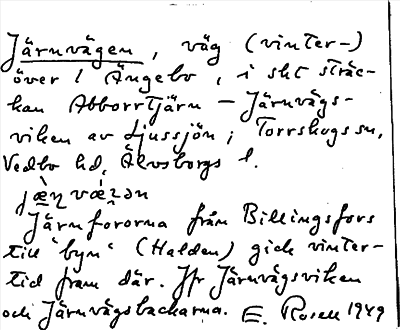 Järnvägen, väg (vinter-)
över l Ängebo, i skt sträc-
kan Abborrtjärn – Järnvägs-
viken av Ljussjön; Torrskogs sn,
Vedbo hd, Älvsborgs l.
Järnfororna från Billingsfors
till "byn" (Halden) gick vinter-
tid fram där. Jfr Järnvägsviken
och Järnvägsbackarna. E. Rosell 1949